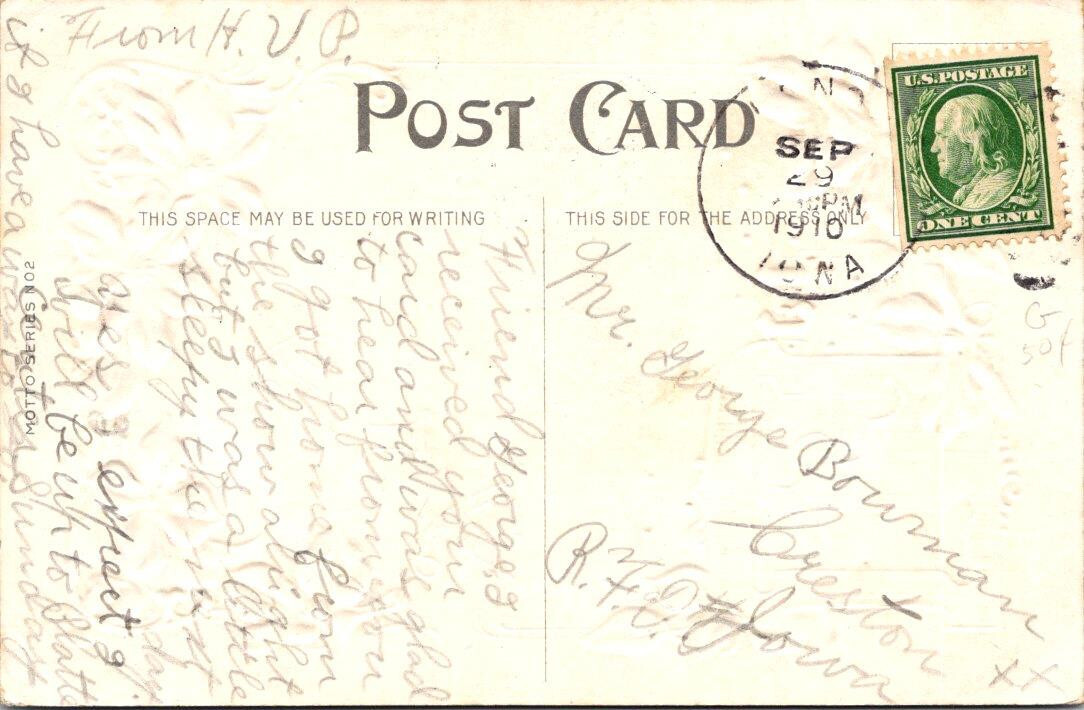 From H. V. P.
POST CARD
THIS SPACE MAY BE USED FOR WRITING
THIS SIDE FOR THE ADDRESS ONLY
U.S. POSTAGE
ONE CENT
SEP
29
PM
1910
IOWA
MOTTO SERIES NO 2
Friend George, I
received your
card and was glad
to hear from you
I got home from
the show alright
but I was a little
sleepy the next
day
Yes I expect I
will be up to Platte
Center Sunday
if I have a way to
Mr. George Bowman
Creston
Iowa
R. F. D.
xx
G
50¢